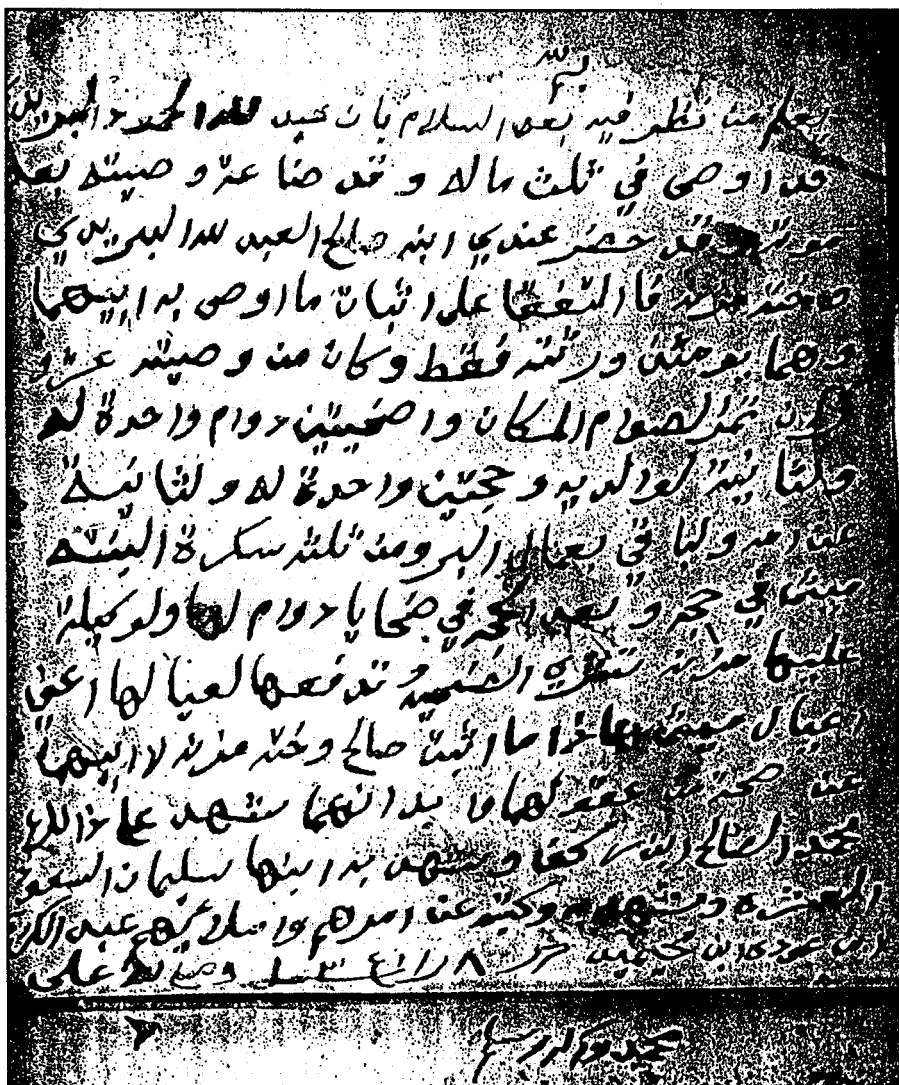 بسم
يعلم من نظر فيه بعد السلام بان عبد لله المحمد البريدي
قد اوصى في ثلث ماله و قد ضاعة و صيته بعد
موته وقد حضر عندي ابنه صالح العبد لله البريدي
وخته مزنه فا التفقا على اثبات ما اوصى به ابيهما
وهما يومئذن ورثته فقط وكان من وصيته عزو
تمر لصوام المكان واضحيتين دوام واحدة له
ولثا نية لوالديه و حجتين واحدة له ولثا نيه
عن امه ولبا في بعمال البر ومن ثلثه سكرة البنته
ميثا في حجه و بعد الحجه في ضحايا دوام لها ولوكيلة
عليها مزنه الضحيه و تدفعها لعيا لها اعني
اعيال ميثا هاذا ما اثبت صالح وخته مزنه لا ابيهما
عن صحة من عقولهما وا بدانهما شهد على ذالك
محمد الصالح ابن وشهد به ابنها سليمان السعود
وشهد به وكتبه عن امرهم واملائهم عبد الكريم
ابن عودة ابن محيميد حرر ٨ را وصلى الله على
محمد واله وسلم